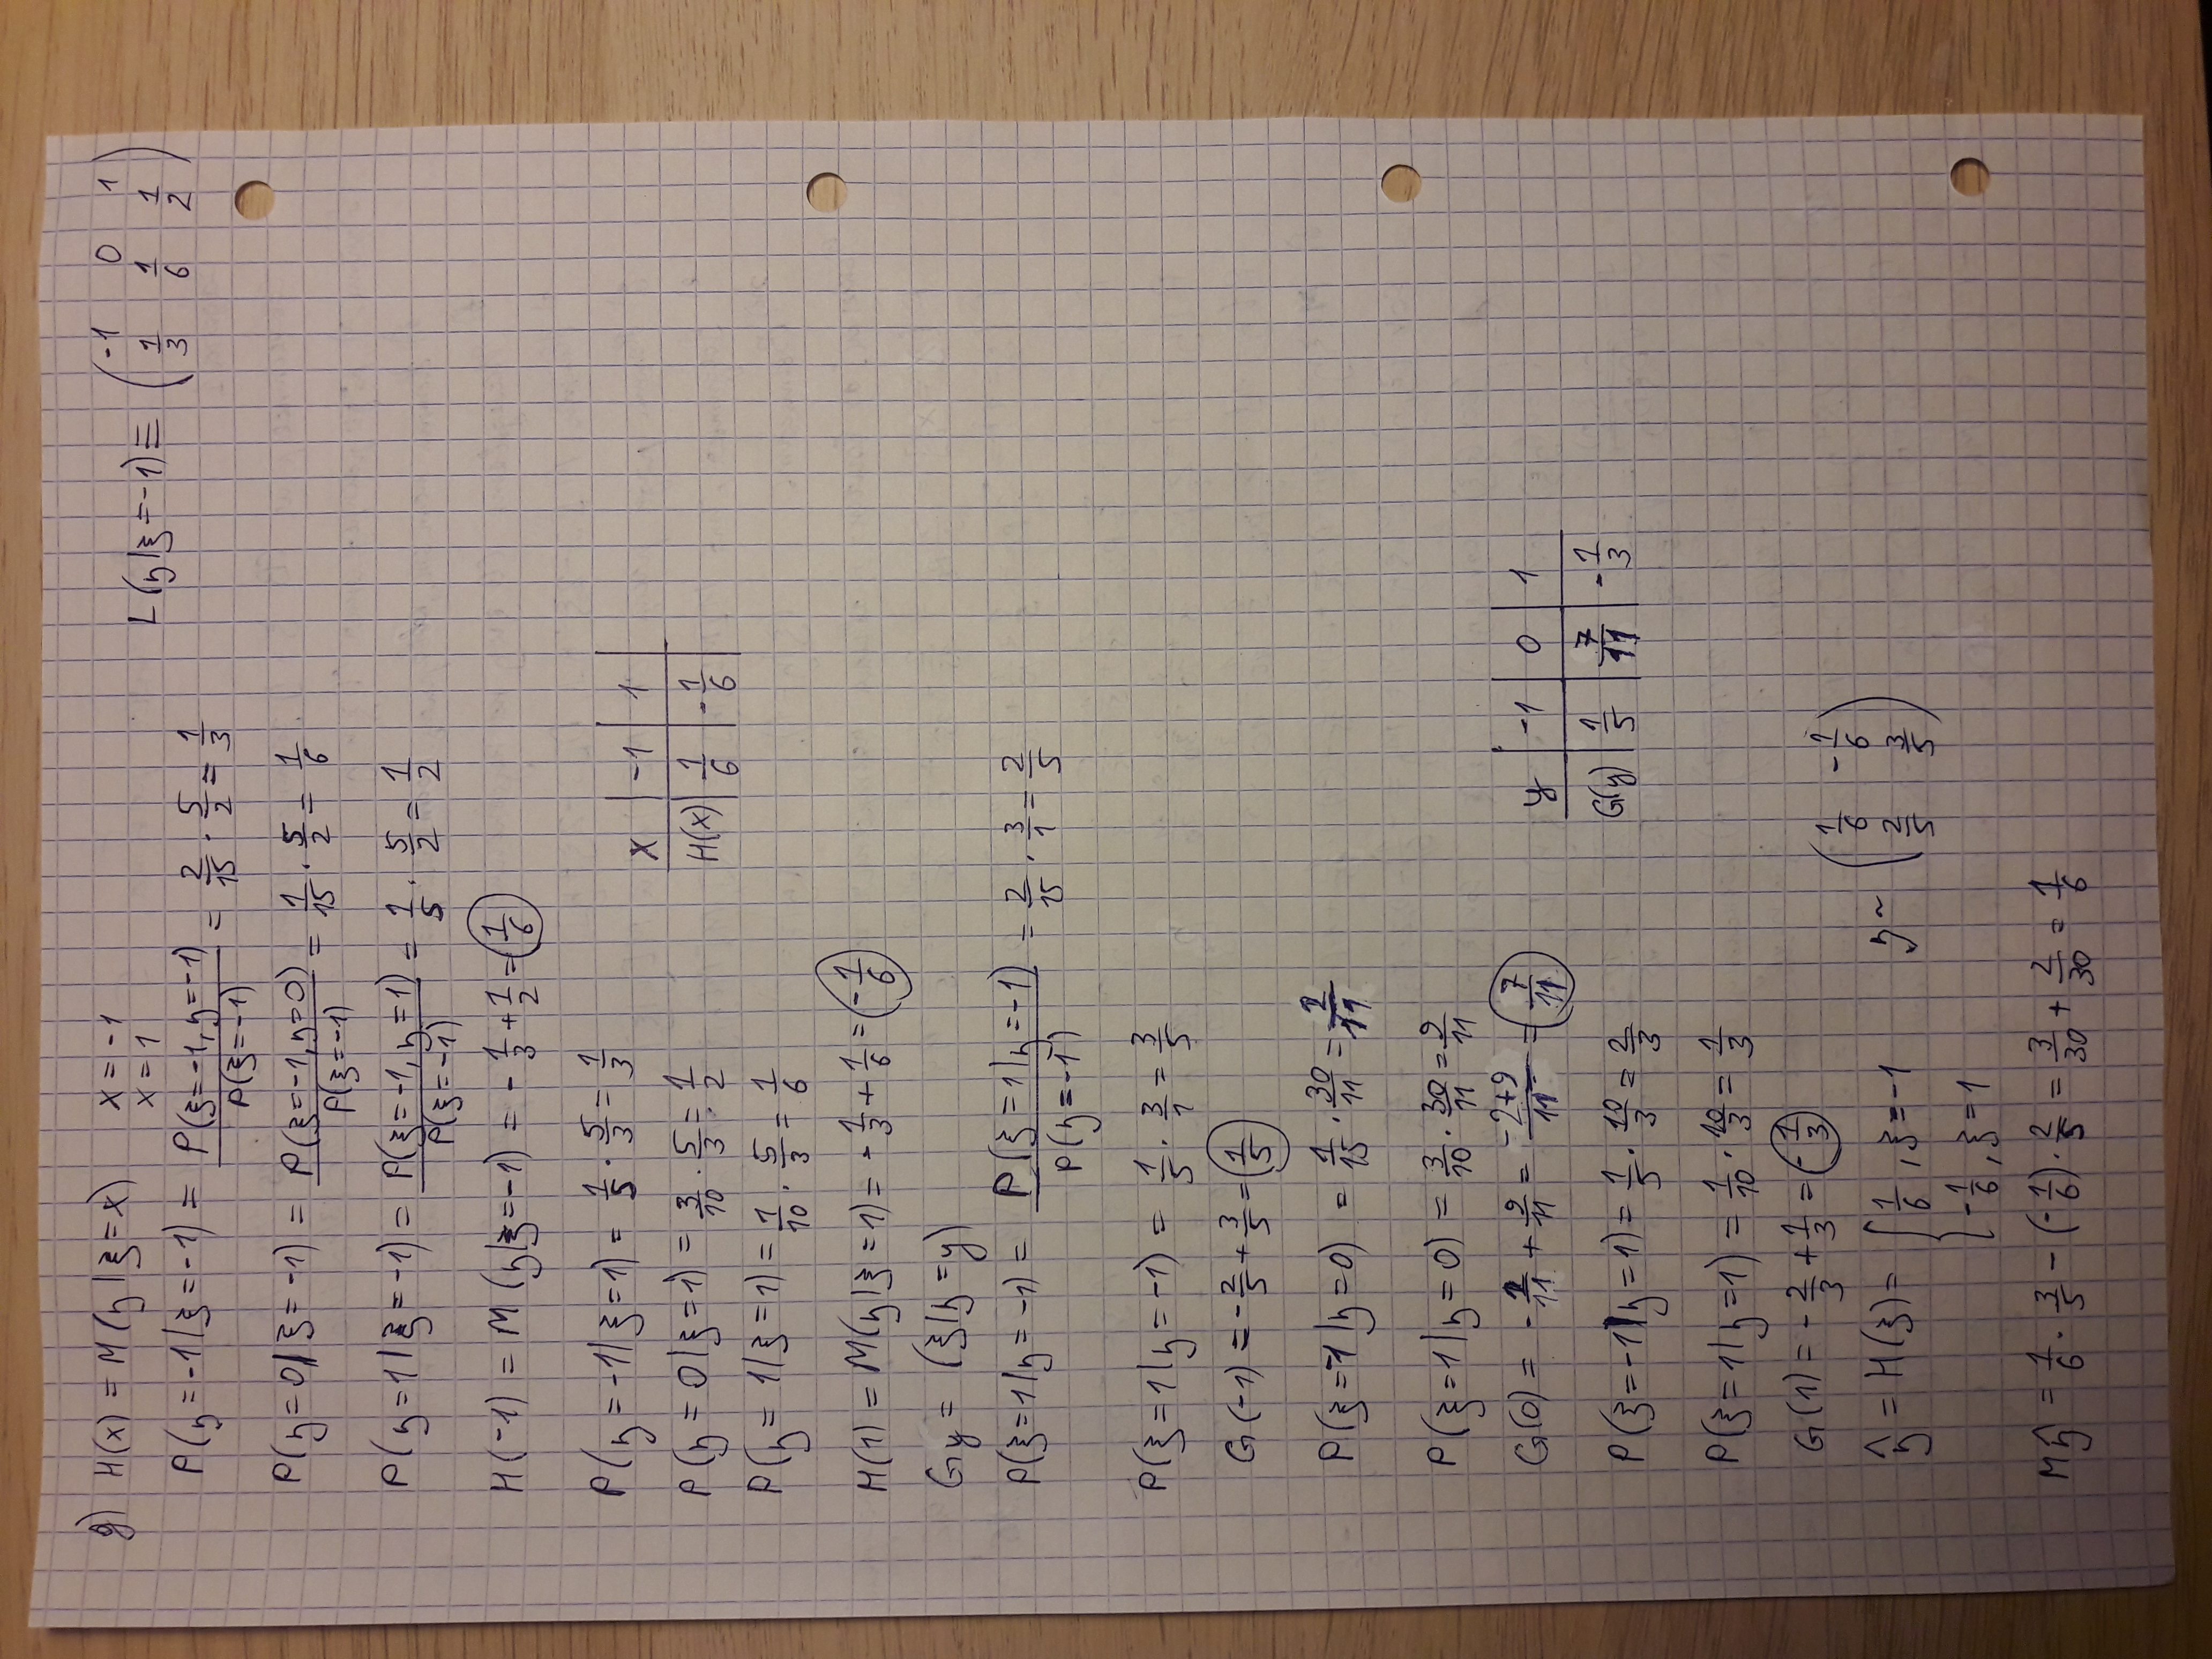 g) H(x) = M(η|ξ=x) x = -1
x = 1
L(η|ξ=-1) ≡ ( -1 0 1
1/3 1/6 1/2 )
P(η=-1|ξ=-1) = P(ξ=-1,η=-1)/P(ξ=-1) = 2/15 · 5/2 = 1/3
P(η=0|ξ=-1) = P(ξ=-1,η=0)/P(ξ=-1) = 1/15 · 5/2 = 1/6
P(η=1|ξ=-1) = P(ξ=-1,η=1)/P(ξ=-1) = 1/5 · 5/2 = 1/2
H(-1) = M(η|ξ=-1) = -1/3 + 1/2 = 1/6
P(η=-1|ξ=1) = 1/5 · 5/3 = 1/3
P(η=0|ξ=1) = 3/10 · 5/3 = 1/2
P(η=1|ξ=1) = 1/10 · 5/3 = 1/6
x | -1 | 1 |
H(x) | 1/6 | -1/6 |
H(1) = M(η|ξ=1) = -1/3 + 1/6 = -1/6
Gy = (ξ|η=y)
P(ξ=1|η=-1) = P(ξ=1|η=-1)/P(η=-1) = 2/15 · 3/1 = 2/5
P(ξ=1|η=-1) = 1/5 · 3/1 = 3/5
G(-1) = -2/5 + 3/5 = 1/5
P(ξ=-1|η=0) = 1/15 · 30/11 = 2/11
P(ξ=1|η=0) = 3/10 · 30/11 = 9/11
G(0) = -2/11 + 9/11 = (-2+9)/11 = 7/11
y | -1 | 0 | 1
G(y) | 1/5 | 7/11 | -1/3
P(ξ=-1|η=1) = 1/5 · 10/3 = 2/3
P(ξ=1|η=1) = 1/10 · 10/3 = 1/3
G(1) = -2/3 + 1/3 = -1/3
η̂ = H(ξ) = { 1/6, ξ=-1
-1/6, ξ=1
η ~ ( 1/6 -1/6
2/5 3/5 )
Mη̂ = 1/6 · 3/5 - (-1/6) · 2/5 = 3/30 + 2/30 = 1/6